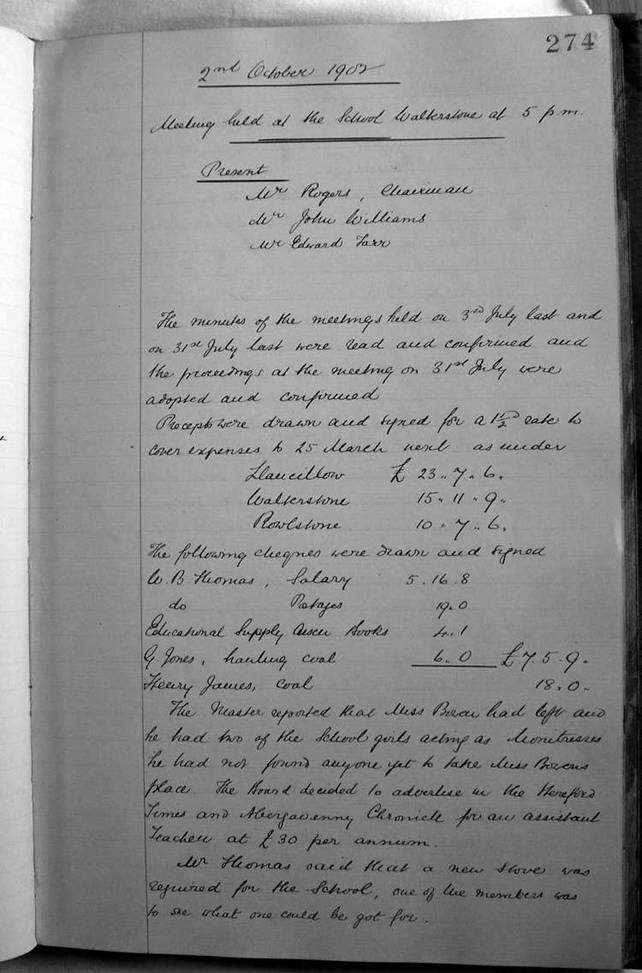 274
2nd October 1902
Meeting held at the School Walterstone at 5 p.m.
Present
Mr Rogers, Chairman
Mr John Williams
Mr Edward Farr
The minutes of the meetings held on 3rd July last and
on 31st July last were read and confirmed and
the proceedings at the meeting on 31st July were
adopted and confirmed
Precepts were drawn and signed for a 1½d rate to
cover expenses to 25 March next as under
Llancillow £ 23.. 7.. 6.
Walterstone 15.. 11.. 9..
Rowlstone 10.. 7.. 6.
The following cheques were drawn and signed
W. B Thomas, Salary 5. 16. 8
do Postages 19. 0
Educational Supply Books 4. 1
G Jones, hauling coal 6. 0 £7. 5. 9.
Henry James, coal 18. 0.
The Master reported that Miss Bowen had left and
he had two of the School girls acting as Monitresses
he had not found anyone yet to take Miss Bowens
place. The Board decided to advertise in the Hereford
Times and Abergavenny Chronicle for an assistant
Teacher at £30 per annum.
Mr Thomas said that a new Stove was
required for the School, one of the members was
to see what one could be got for.